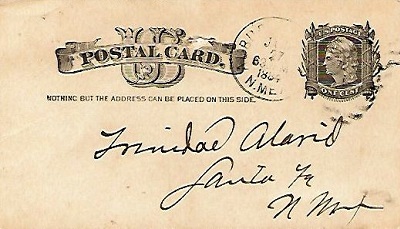 POSTAL CARD.
U.S. POSTAGE
ONE CENT
27
N.MEX
NOTHING BUT THE ADDRESS CAN BE PLACED ON THIS SIDE.
Trinidad Alarid
Santa Fe
N Mex